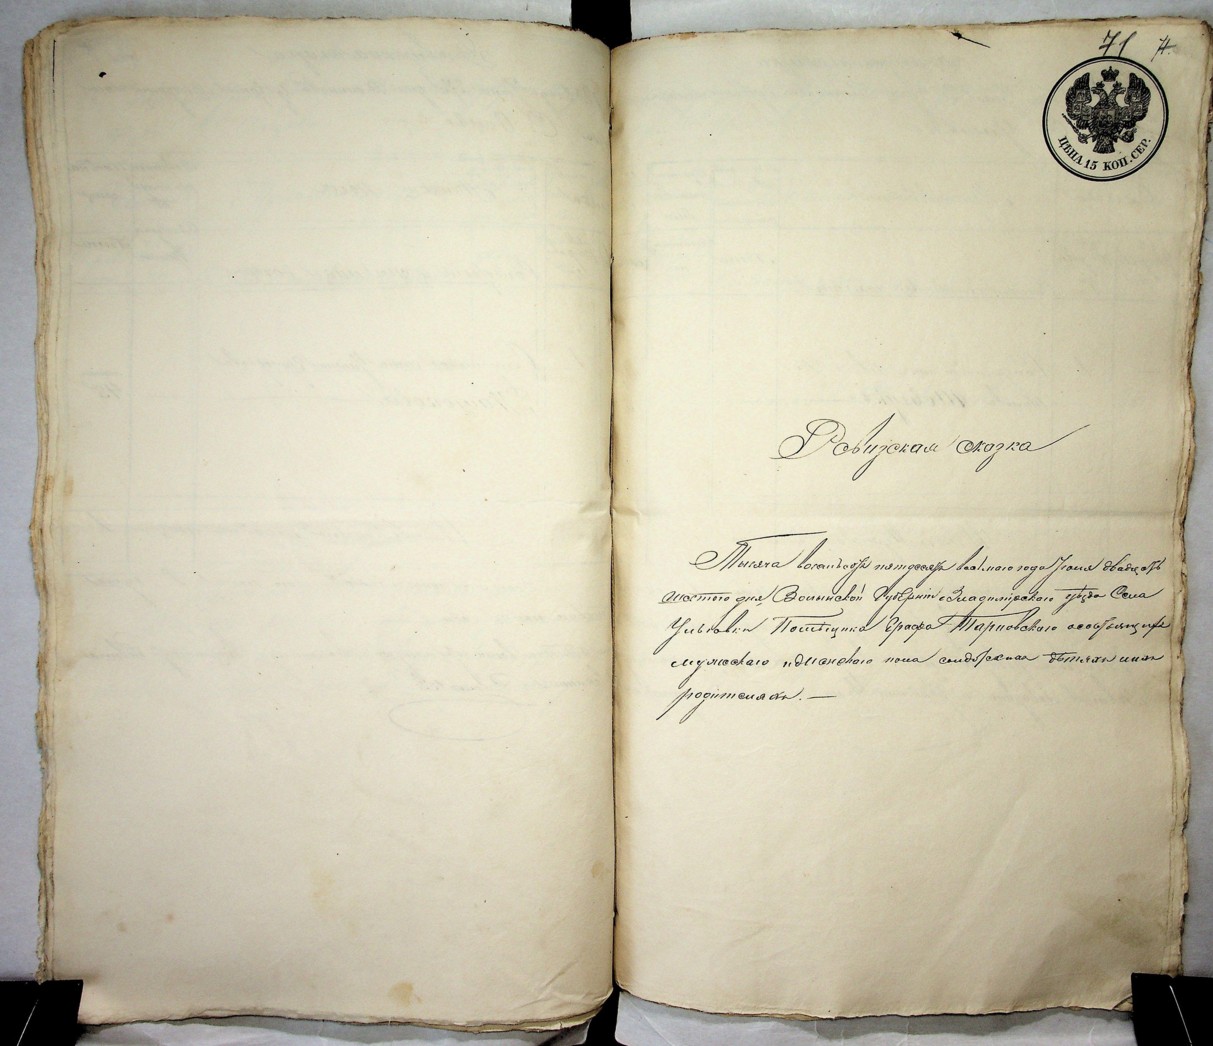 71
ЦѢНА 15 КОП. СЕР.
Ревизская сказка
Тысяча восемьсотъ пятдесятъ восьмаго года Іюня двадцать
шестого дня, Волынской Губерніи Владимірскаго уѣзда Села
Ульговки Помѣщика Графа Тарновскаго о состоящихъ
мужескаго и женскаго пола
родителяхъ. —